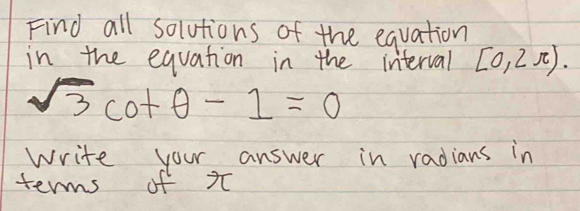 Find all solutions of the equation
in the equation in the interval [0, 2π).
√3 cot θ - 1 = 0
Write your answer in radians in
terms of π